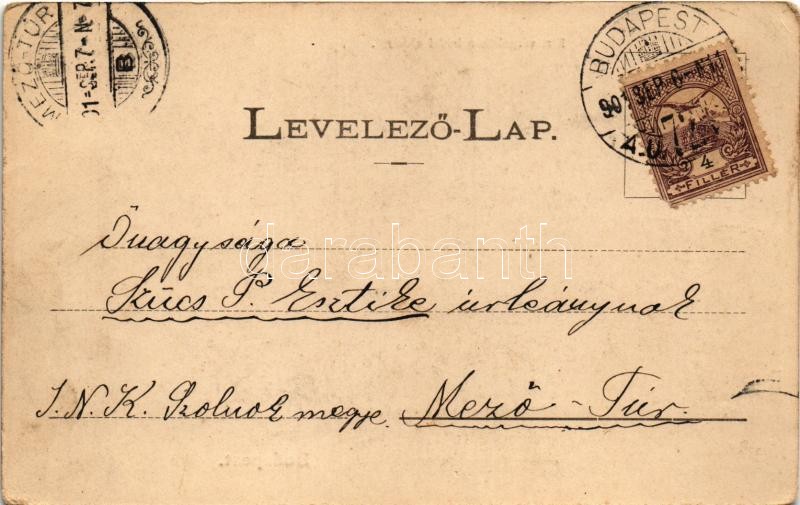 MEZŐ-TÚR
901 SEP. 7
B
BUDAPEST
901 SEP. 6
4
FILLÉR
LEVELEZŐ-LAP.
Őnagysága
darabanth
Szűcs P. Esztike úrleánynak
J. N. K. Szolnok megye. Mező-Túr.